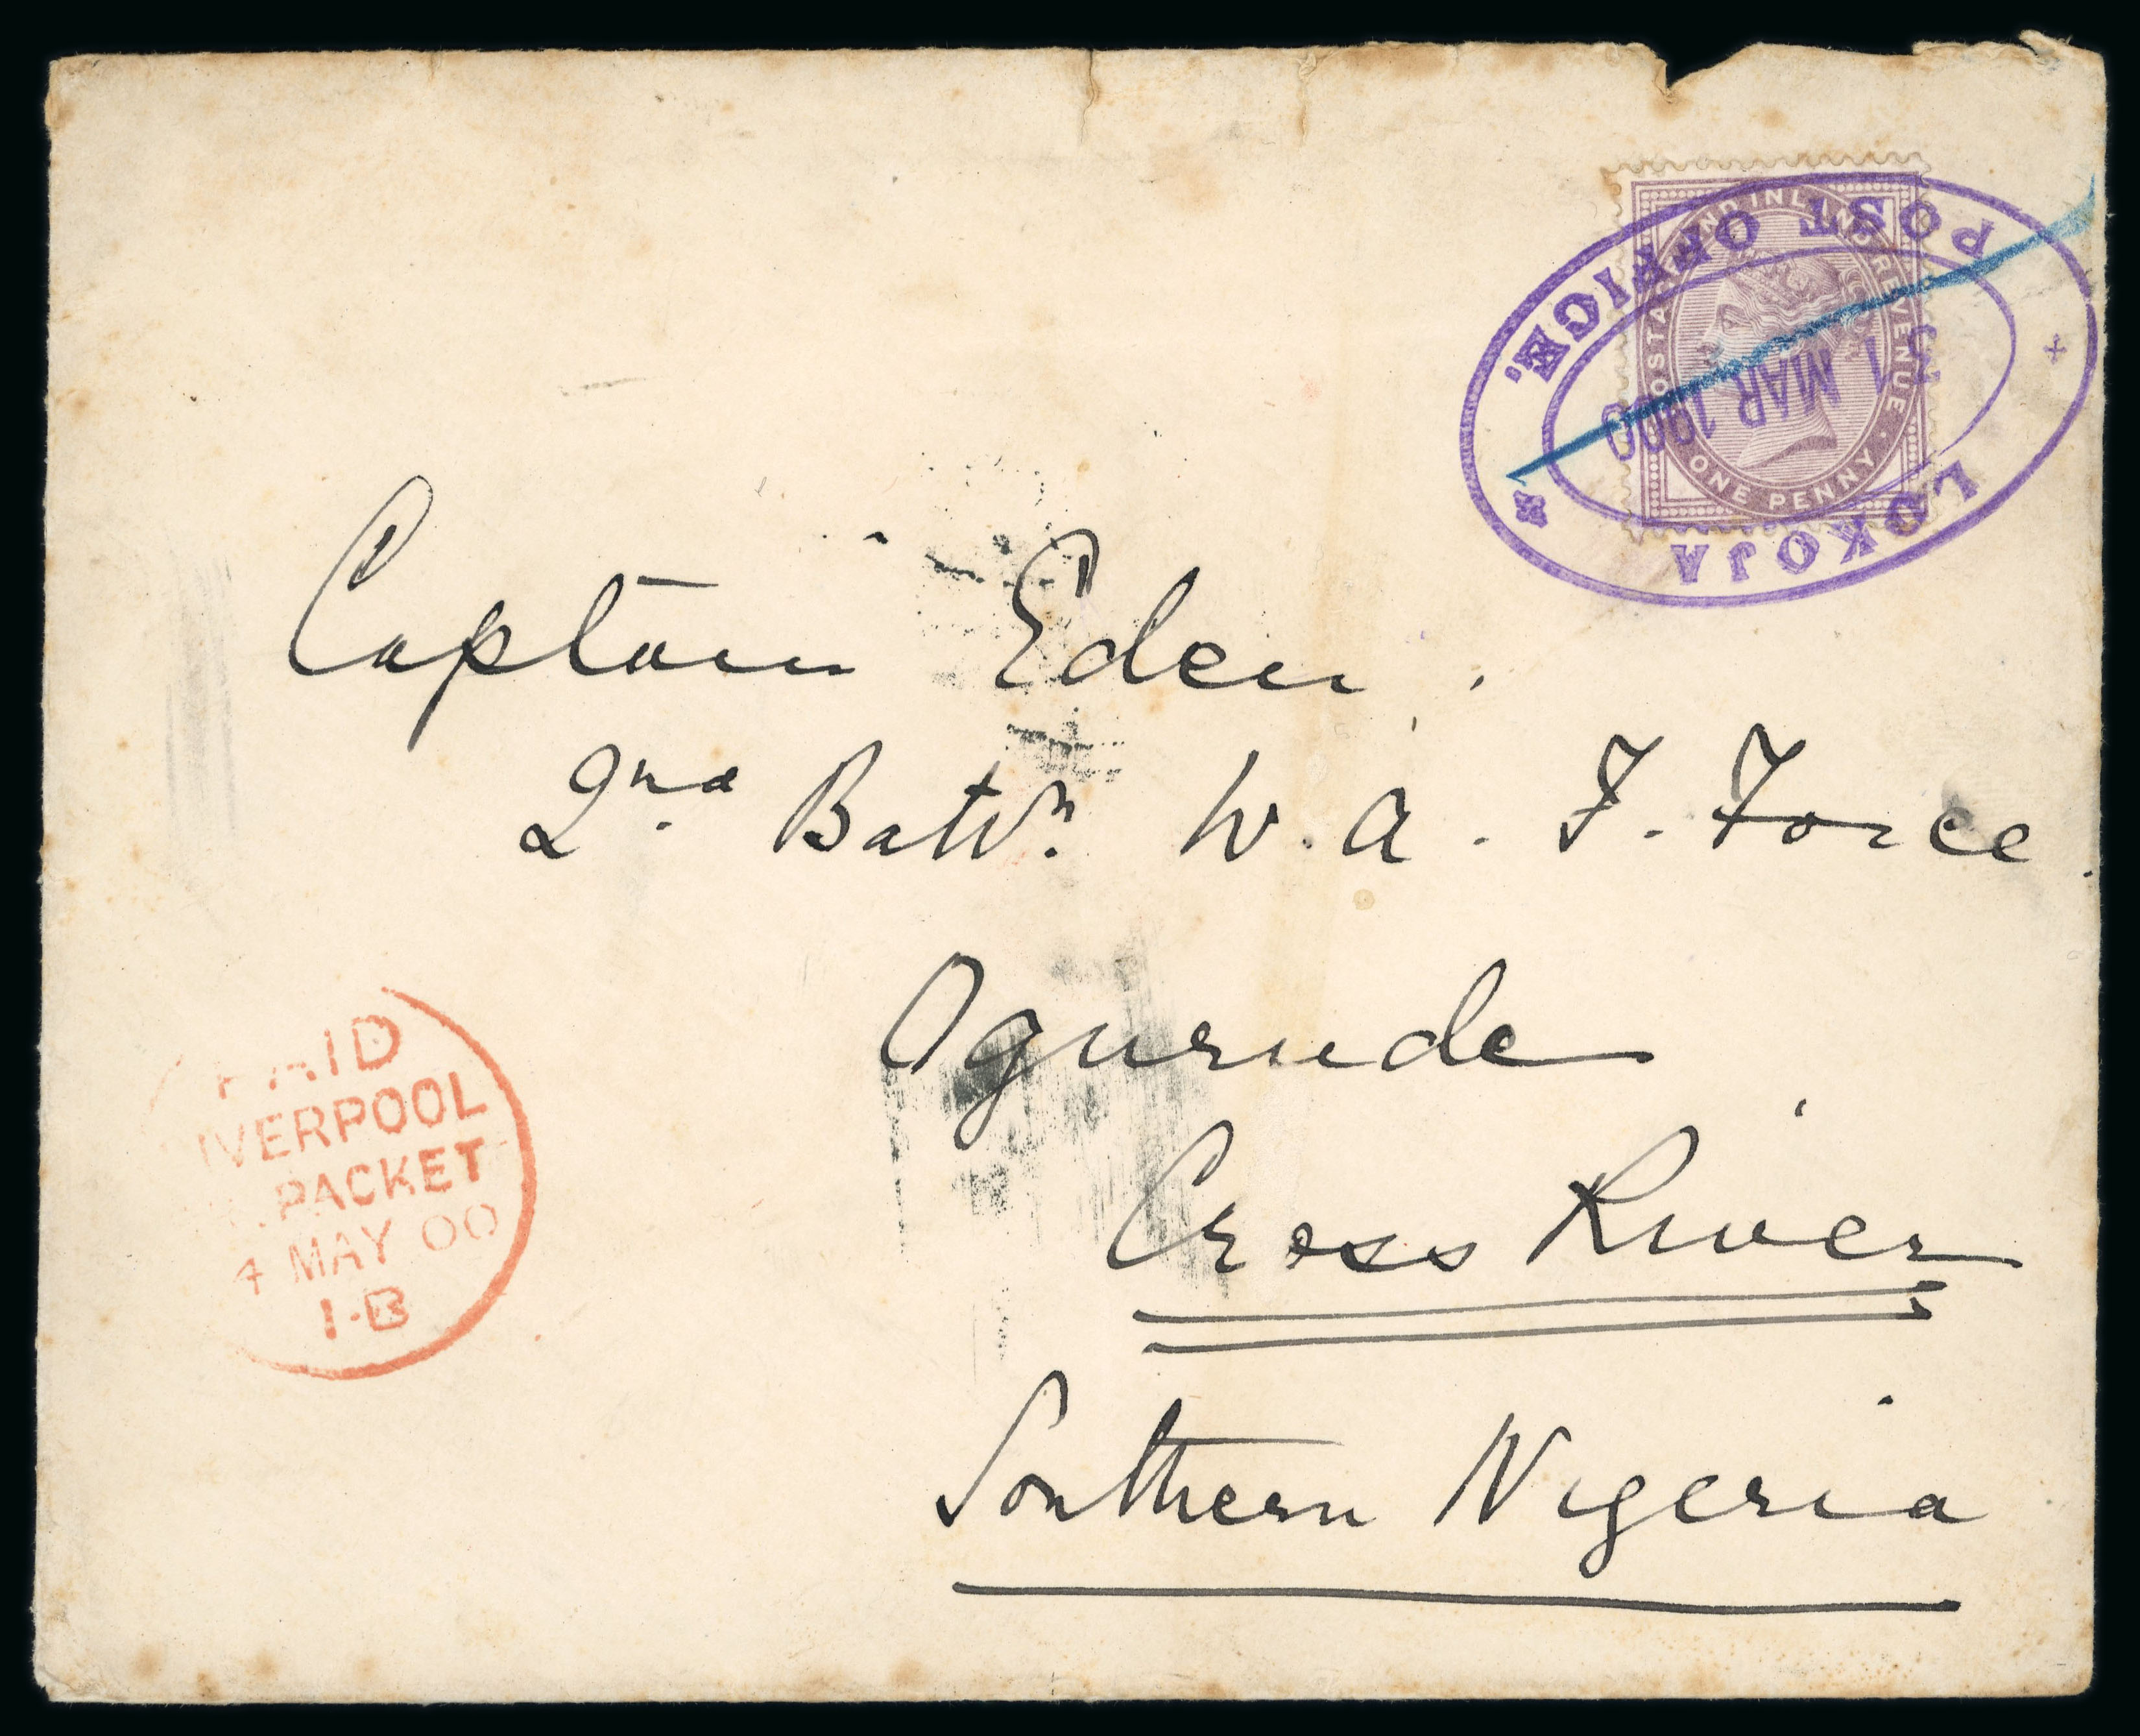 POSTAGE AND INLAND REVENUE
ONE PENNY
POST OFFICE.
31 MAR 1900
LOKOJA
Captain Eden.
2nd Battn. W. A. F. Force.
Ogurude
Cross River
Southern Nigeria
PAID
LIVERPOOL
PACKET
4 MAY 00
1-B